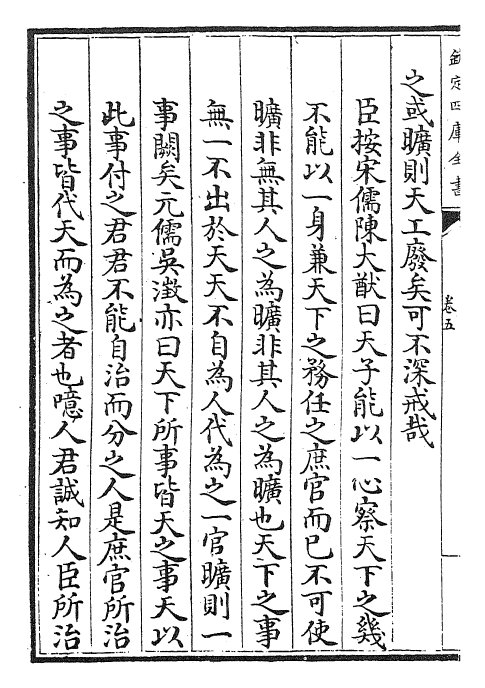 欽定四庫全書
卷五
之或曠則天工廢矣可不深戒哉
臣按宋儒陳大猷曰天子能以一心察天下之幾
不能以一身兼天下之務任之庶官而已不可使
曠非無其人之為曠非其人之為曠也天下之事
無一不出於天天不自為人代為之一官曠則一
事闕矣元儒吳澂亦曰天下所事皆天之事天以
此事付之君君不能自治而分之人是庶官所治
之事皆代天而為之者也噫人君誠知人臣所治